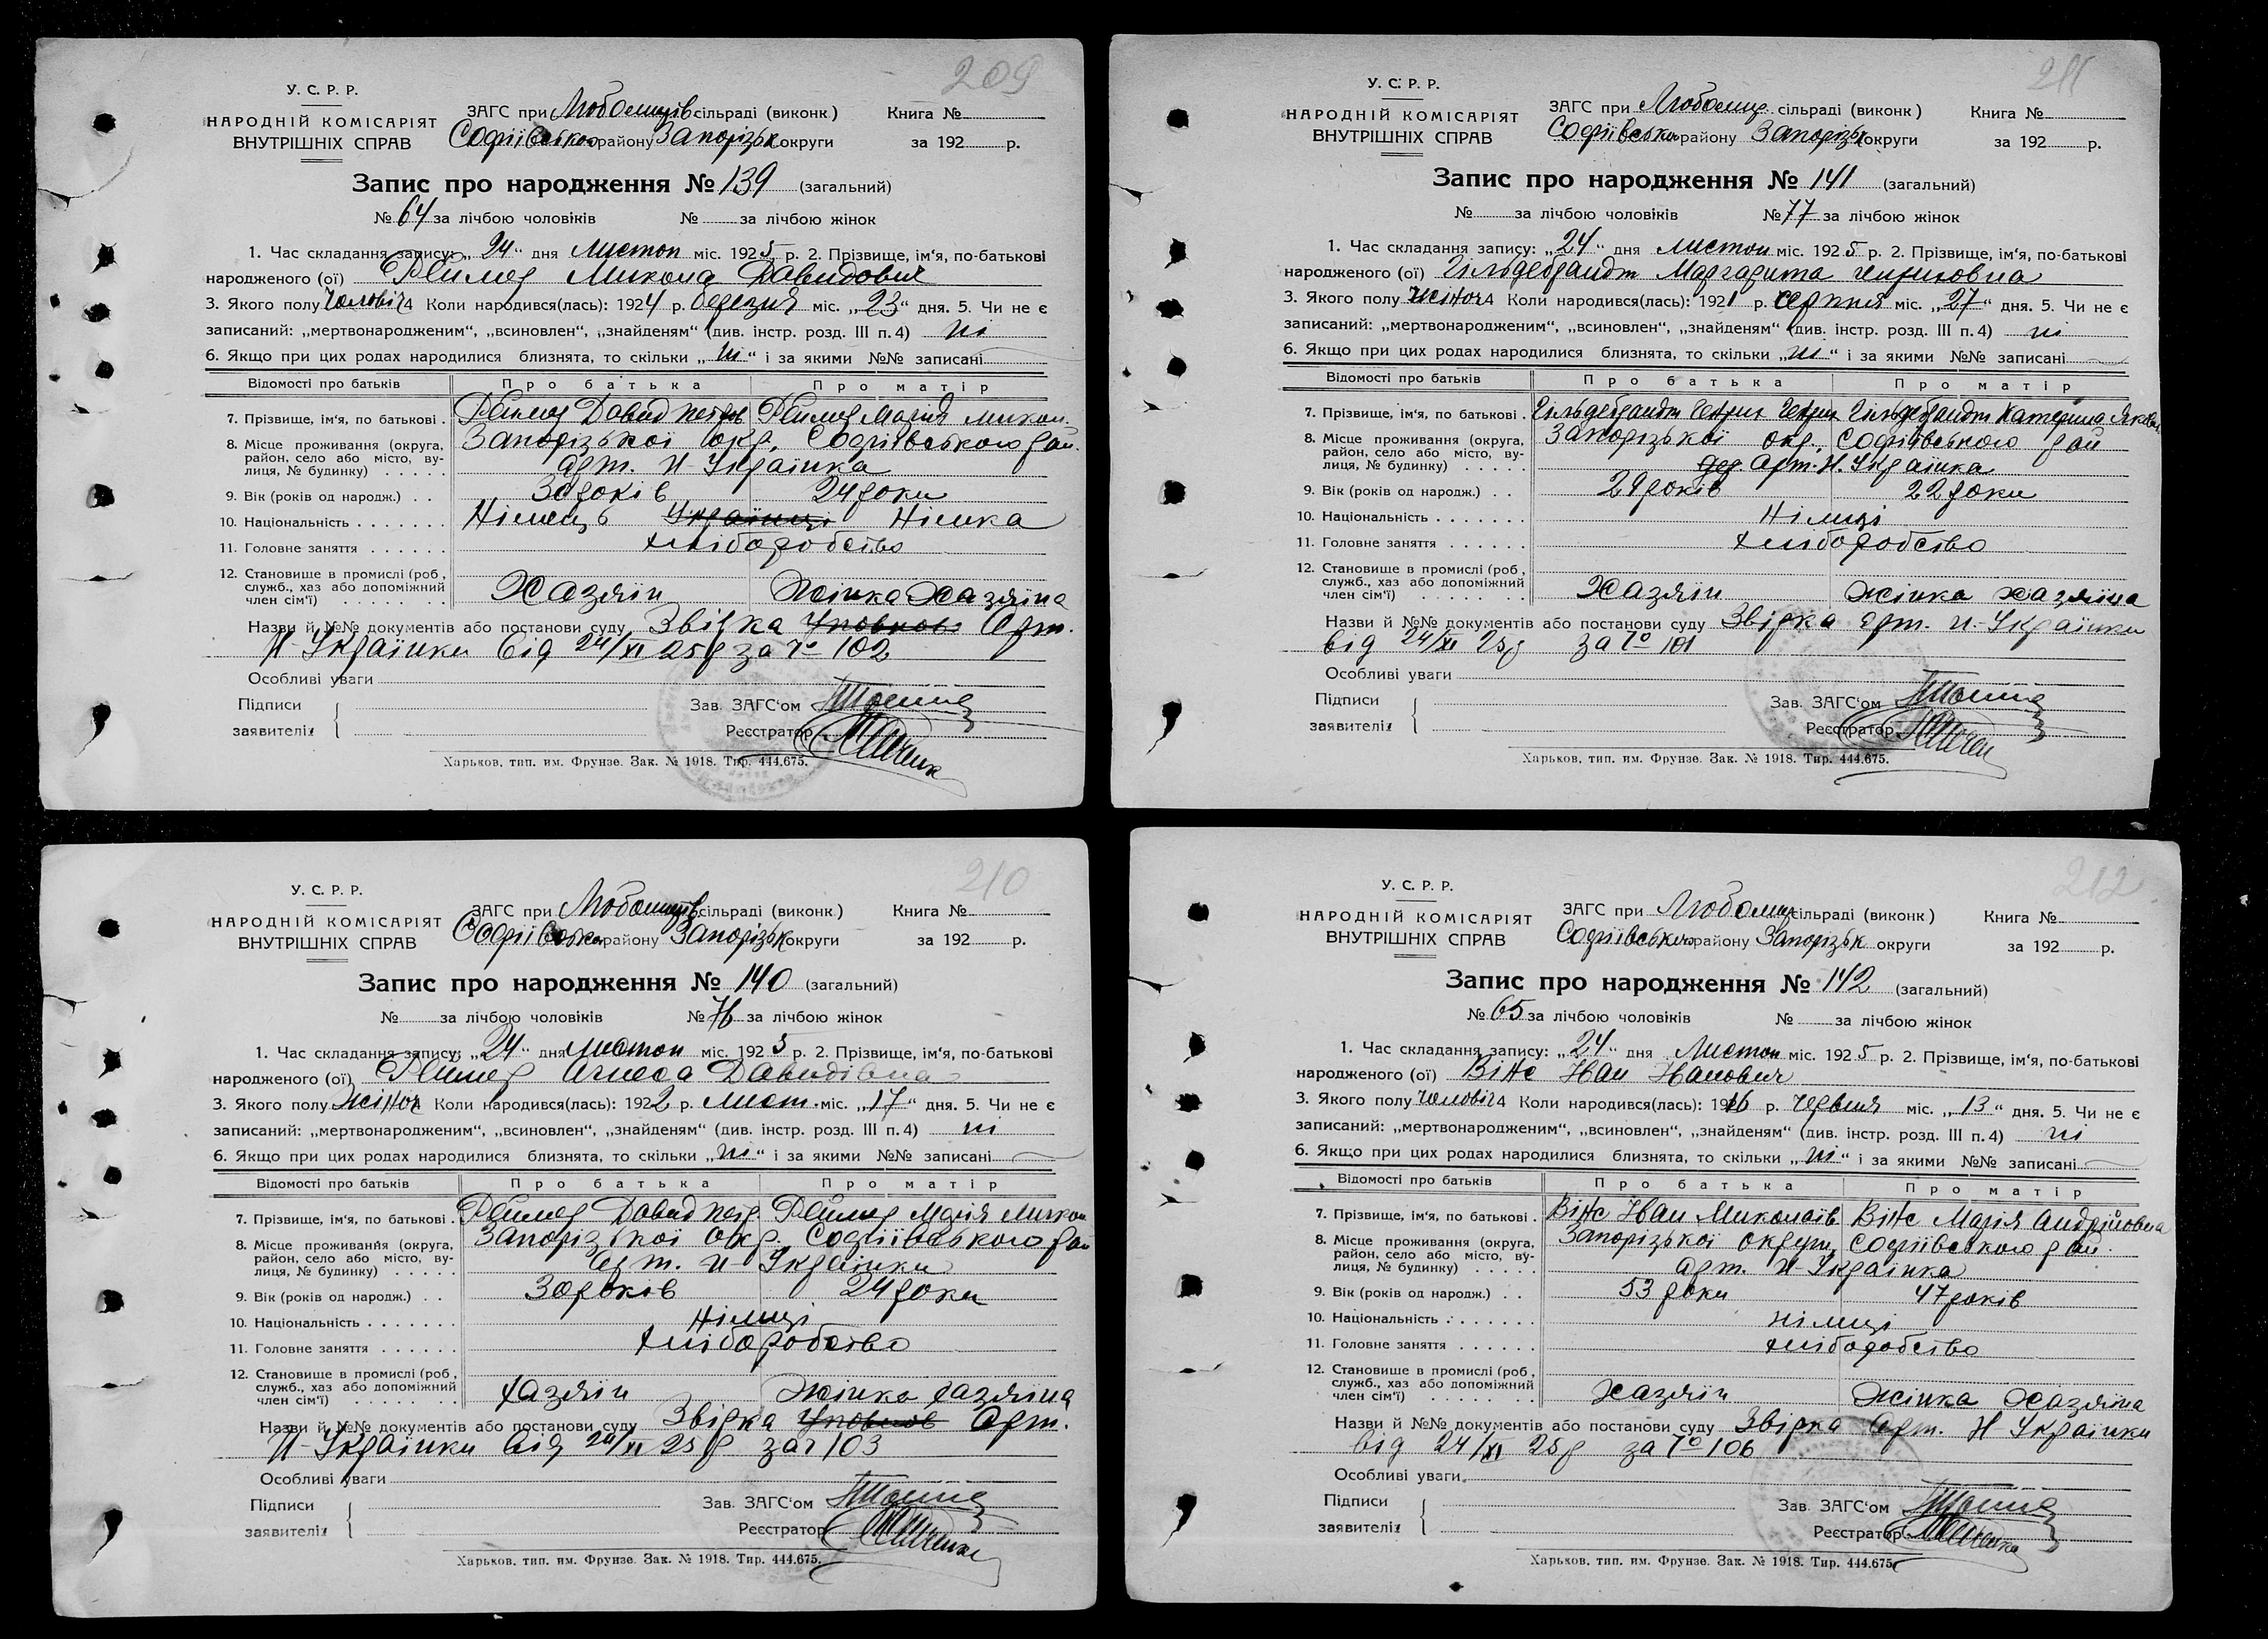 209
У. С. Р. Р.
НАРОДНІЙ КОМІСАРІЯТ
ВНУТРІШНІХ СПРАВ
ЗАГС при Любомирів сільраді (виконк.)
Софіївсько району Запорізьк округи
Книга №
за 192 р.
Запис про народження № 139 (загальний)
№ 64 за лічбою чоловіків № за лічбою жінок
1. Час складання запису: „24“ дня Листоп міс. 1925 р. 2. Прізвище, ім'я, по-батькові
народженого (ої) Реймер Микола Давидович
3. Якого полу Чоловіч 4 Коли народився(лась): 1924 р. березня міс. „23“ дня. 5. Чи не є
записаний: „мертвонародженим“, „всиновлен“, „знайденям“ (див. інстр. розд. III п. 4) ні
6. Якщо при цих родах народилися близнята, то скільки „ні“ і за якими №№ записані
Відомості про батьків Про батька Про матір
7. Прізвище, ім'я, по батькові . Реймер Давид Петров Реймер Марія Микол.
8. Місце проживання (округа, район, село або місто, вулиця, № будинку) Запорізької окр. Софіївського рай.
арт. Н-Українка
9. Вік (років од народж.) . . 30 років 24 роки
10. Національність . . . . . . . Німець Українці Німка
11. Головне заняття . . . . . . хліборобство
12. Становище в промислі (роб, служб., хаз або допоміжний член сім'ї) Хазяїн Жінка Хазяїна
Назви й №№ документів або постанови суду Звірка Уповнов Арт.
Н-Українки від 24/XI 25 р за № 102
Особливі уваги
Підписи
заявителів
Зав. ЗАГС'ом
Реєстратор
Харьков, тип. им. Фрунзе. Зак. № 1918. Тир. 444.675.
211
У. С. Р. Р.
НАРОДНІЙ КОМІСАРІЯТ
ВНУТРІШНІХ СПРАВ
ЗАГС при Любомир. сільраді (виконк)
Софіївсько району Запорізьк округи
Книга №
за 192 р.
Запис про народження № 141 (загальний)
№ за лічбою чоловіків № 77 за лічбою жінок
1. Час складання запису: „24“ дня листоп міс. 1925 р. 2. Прізвище, ім'я, по-батькові
народженого (ої) Гільдебрандт Маргарита
3. Якого полу Жіноч 4 Коли народився(лась): 1921 р. серпня міс. „27“ дня. 5. Чи не є
записаний: „мертвонародженим“, „всиновлен“, „знайденям“ (див. інстр. розд. III п. 4) ні
6. Якщо при цих родах народилися близнята, то скільки „ні“ і за якими №№ записані
Відомості про батьків Про батька Про матір
7. Прізвище, ім'я, по батькові . Гільдебрандт Генрих Генрих Гільдебрандт Катерина Яковл.
8. Місце проживання (округа, район, село або місто, вулиця, № будинку) Запорізької окр. Софіївського рай
Арт. Н. Українка
9. Вік (років од народж.) . . 29 років 22 роки
10. Національність . . . . . . . Німці
11. Головне заняття . . . . . . хліборобство
12. Становище в промислі (роб, служб., хаз або допоміжний член сім'ї) Хазяїн Жінка хазяїна
Назви й №№ документів або постанови суду Звірка Арт. Н-Українки
від 24/XI 25 р за № 101
Особливі уваги
Підписи
заявителів
Зав. ЗАГС'ом
Реєстратор
Харьков, тип. им. Фрунзе. Зак. № 1918. Тир. 444.675.
210
У. С. Р. Р.
НАРОДНІЙ КОМІСАРІЯТ
ВНУТРІШНІХ СПРАВ
ЗАГС при Любомирів сільраді (виконк)
Софіївсько району Запорізьк округи
Книга №
за 192 р.
Запис про народження № 140 (загальний)
№ за лічбою чоловіків № 76 за лічбою жінок
1. Час складання запису: „24“ дня Листоп міс. 1925 р. 2. Прізвище, ім'я, по-батькові
народженого (ої) Реймер Агнеса Давидівна
3. Якого полу Жіноч Коли народився(лась): 1922 р. лист. міс. „17“ дня. 5. Чи не є
записаний: „мертвонародженим“, „всиновлен“, „знайденям“ (див. інстр. розд. III п. 4) ні
6. Якщо при цих родах народилися близнята, то скільки „ні“ і за якими №№ записані
Відомості про батьків Про батька Про матір
7. Прізвище, ім'я, по батькові . Реймер Давид Петр. Реймер Марія Микол
8. Місце проживання (округа, район, село або місто, вулиця, № будинку) Запорізької Окр. Софіївського рай
Арт. Н-Українки
9. Вік (років од народж.) . . 30 років 24 роки
10. Національність . . . . . . . Німці
11. Головне заняття . . . . . . хліборобство
12. Становище в промислі (роб, служб., хаз або допоміжний член сім'ї) хазяїн Жінка хазяїна
Назви й №№ документів або постанови суду Звірка Уповнов Арт.
Н-Українки від 24/XI 25 р за № 103
Особливі уваги
Підписи
заявителів
Зав. ЗАГС'ом
Реєстратор
Харьков, тип. им. Фрунзе. Зак. № 1918. Тир. 444.675.
212
У. С. Р. Р.
НАРОДНІЙ КОМІСАРІЯТ
ВНУТРІШНІХ СПРАВ
ЗАГС при Любомир сільраді (виконк)
Софіївсько району Запорізьк округи
Книга №
за 192 р.
Запис про народження № 142 (загальний)
№ 65 за лічбою чоловіків № за лічбою жінок
1. Час складання запису: „24“ дня Листоп міс. 1925 р. 2. Прізвище, ім'я, по-батькові
народженого (ої) Вінс Іван Іванович
3. Якого полу Чоловіч 4 Коли народився(лась): 1916 р. червня міс. „13“ дня. 5. Чи не є
записаний: „мертвонародженим“, „всиновлен“, „знайденям“ (див. інстр. розд. III п. 4) ні
6. Якщо при цих родах народилися близнята, то скільки „ні“ і за якими №№ записані
Відомості про батьків Про батька Про матір
7. Прізвище, ім'я, по батькові . Вінс Іван Миколаїв Вінс Марія Андрійовна
8. Місце проживання (округа, район, село або місто, вулиця, № будинку) Запорізької округи Софіївського рай.
арт. Н-Українка
9. Вік (років од народж.) . . 53 роки 47 років
10. Національність . . . . . . . німці
11. Головне заняття . . . . . . хліборобство
12. Становище в промислі (роб, служб., хаз або допоміжний член сім'ї) Хазяїн Жінка Хазяїна
Назви й №№ документів або постанови суду Звірка Арт. Н-Українки
від 24/XI 25 р за № 106
Особливі уваги
Підписи
заявителів
Зав. ЗАГС'ом
Реєстратор
Харьков, тип. им. Фрунзе. Зак. № 1918. Тир. 444.675.